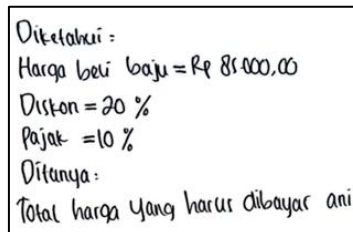 Diketahui :
Harga beli baju = Rp 85.000,00
Diskon = 20 %
Pajak = 10 %
Ditanya :
Total harga yang harus dibayar ani